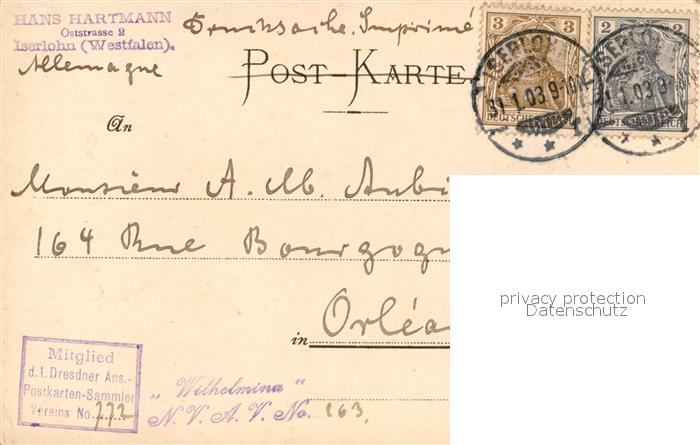 HANS HARTMANN
Oststrasse 2
Iserlohn (Westfalen).
Allemagne
Drucksache. Imprimé
POST-KARTE
3 3
DEUTSCHES
2 2
REICH
ISERLOHN
31.1.03 9-10
ISERLOHN
1.03 9-10
An
Monsieur A. M. Aubi
164 Rue Bourgogn
in Orléa
privacy protection
Datenschutz
Mitglied
d. 1. Dresdner Ans.-
Postkarten-Sammler
Vereins No. 772
„Wilhelmina"
N. V. A. V. No. 163.